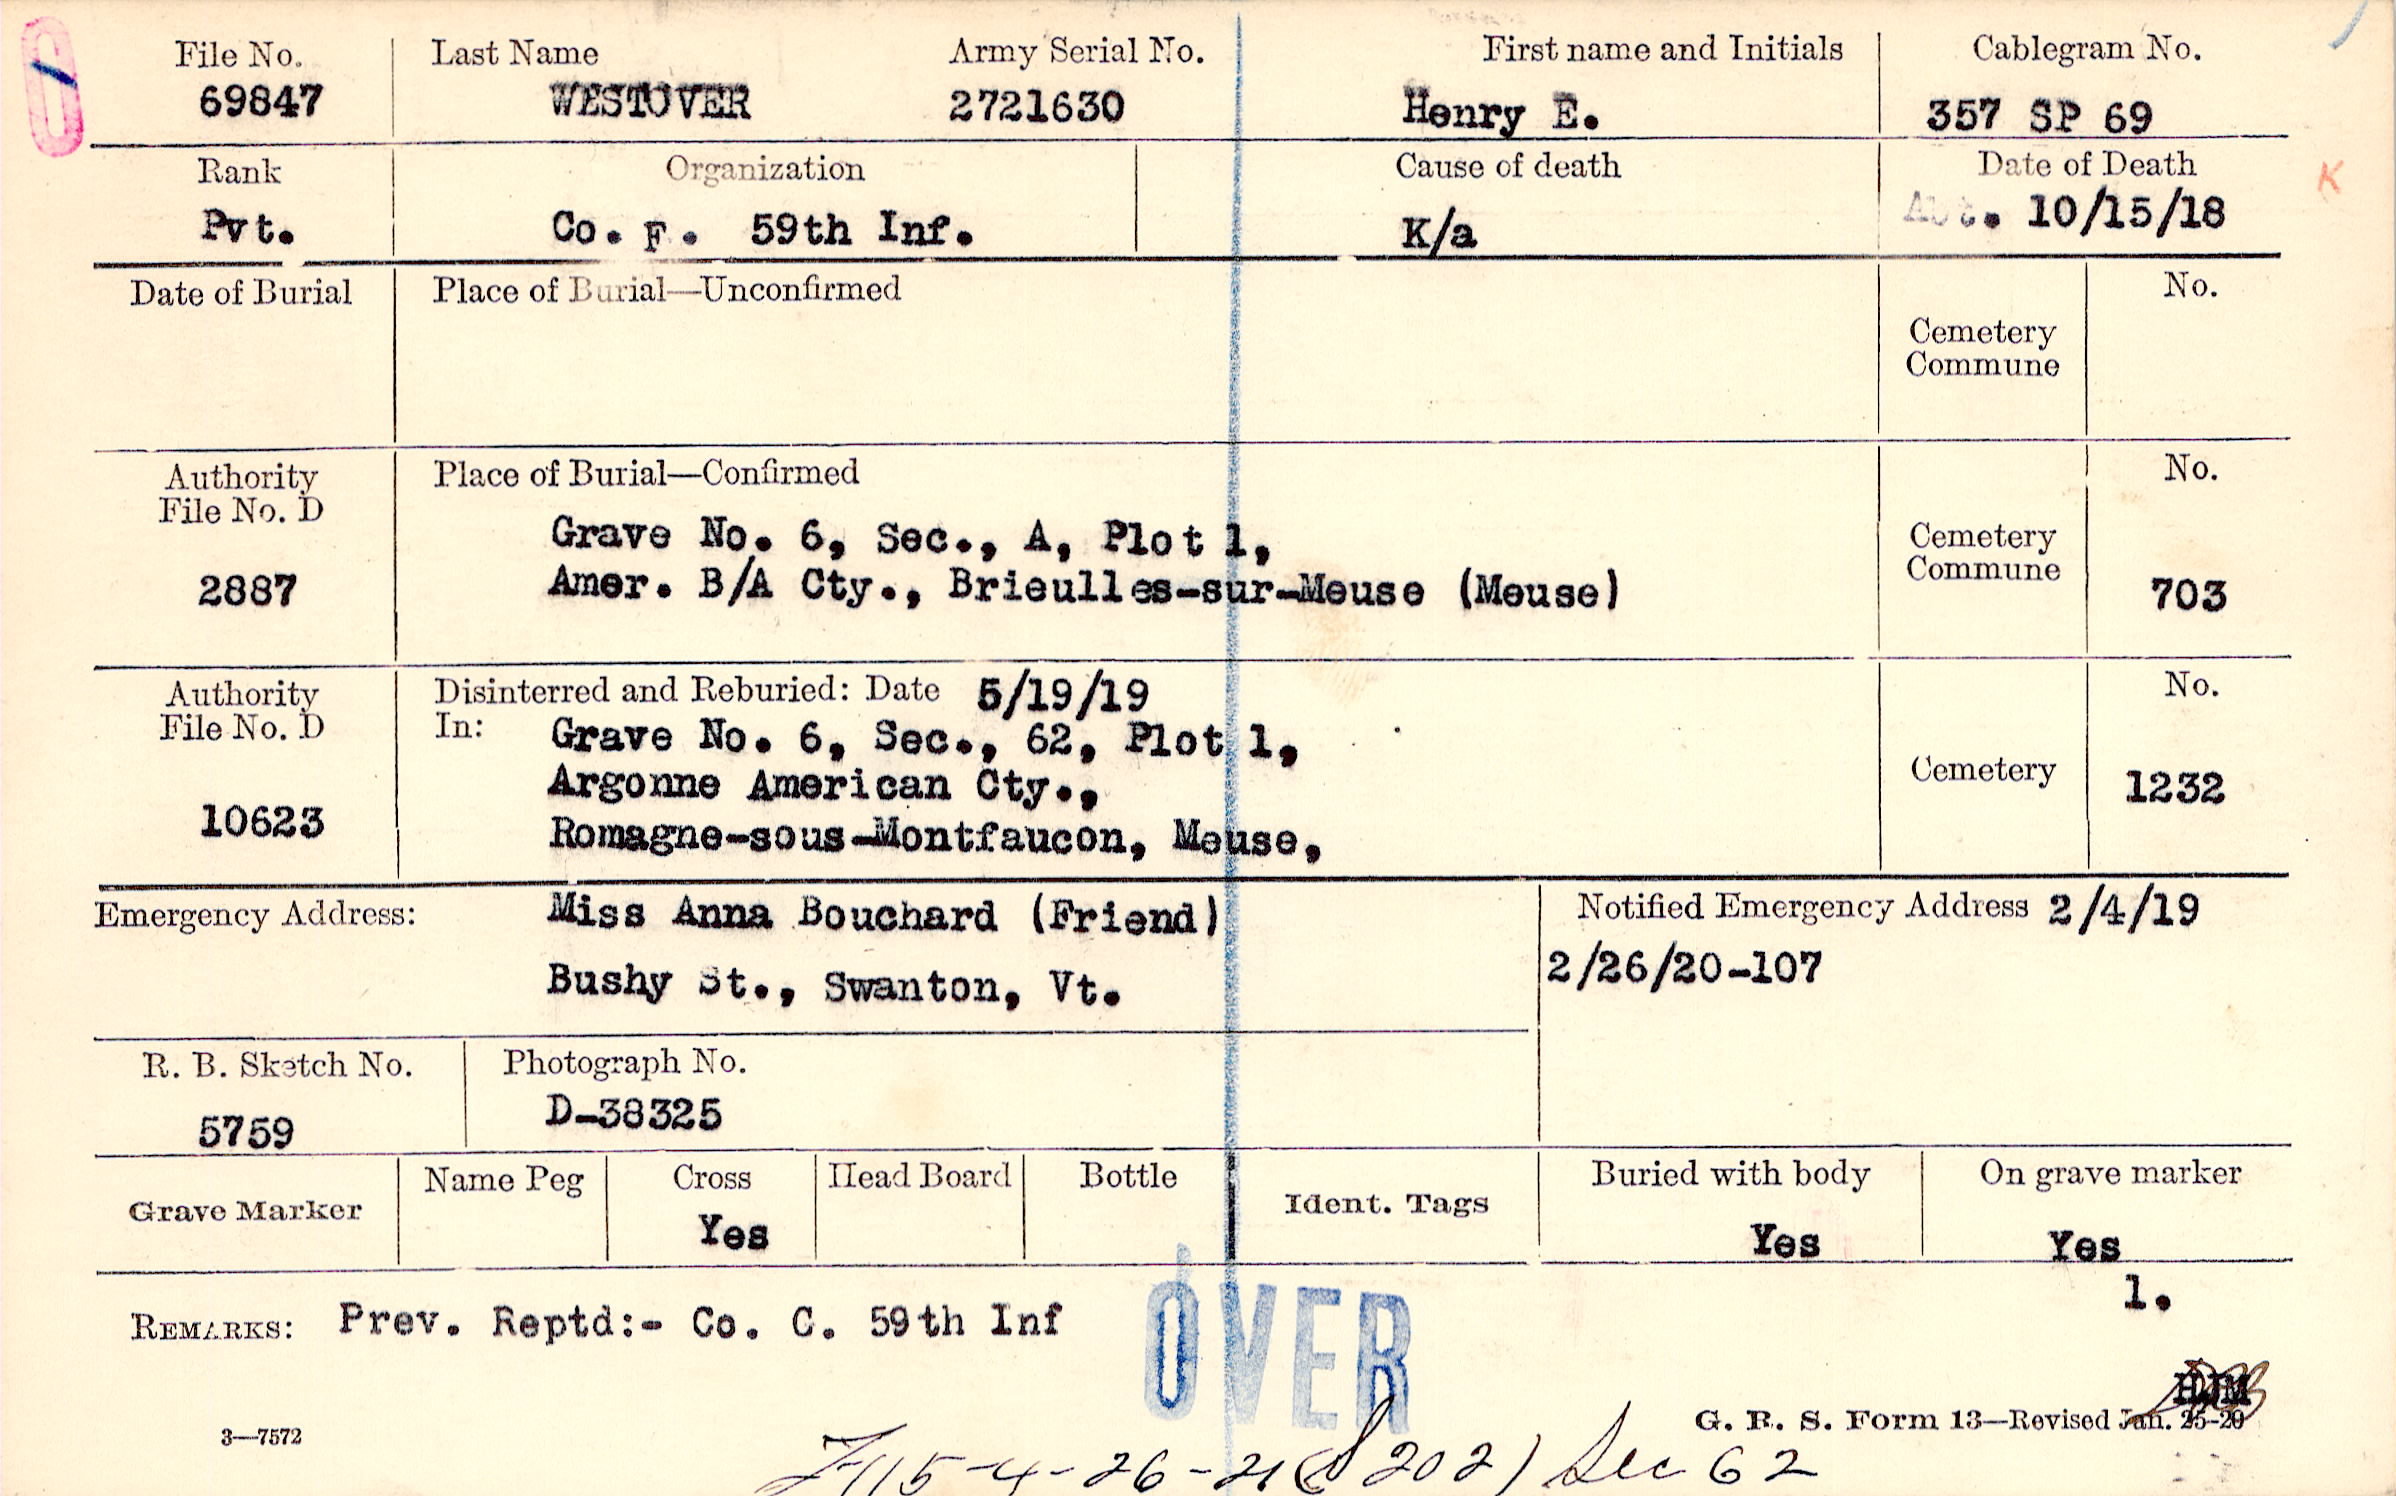 File No. Last Name Army Serial No. First name and Initials Cablegram No.
69847 WESTOVER 2721630 Henry E. 357 SP 69
Rank Organization Cause of death Date of Death
Pvt. Co. F. 59th Inf. K/a Abt. 10/15/18
K
Date of Burial Place of Burial—Unconfirmed No.
Cemetery
Commune
Authority Place of Burial—Confirmed No.
File No. D
Grave No. 6, Sec., A, Plot 1, Cemetery
2887 Amer. B/A Cty., Brieulles-sur-Meuse (Meuse) Commune 703
Authority Disinterred and Reburied: Date 5/19/19 No.
File No. D In: Grave No. 6, Sec., 62, Plot 1,
Argonne American Cty., Cemetery 1232
10623 Romagne-sous-Montfaucon, Meuse,
Emergency Address: Miss Anna Bouchard (Friend) Notified Emergency Address 2/4/19
Bushy St., Swanton, Vt. 2/26/20-107
R. B. Sketch No. Photograph No.
5759 D-38325
Grave Marker Name Peg Cross Head Board Bottle Ident. Tags Buried with body On grave marker
Yes Yes Yes
1.
REMARKS: Prev. Reptd:- Co. C. 59th Inf
OVER
HJM
3—7572 G. R. S. Form 13—Revised Jan. 25-20
4-26-21 202) Sec 62